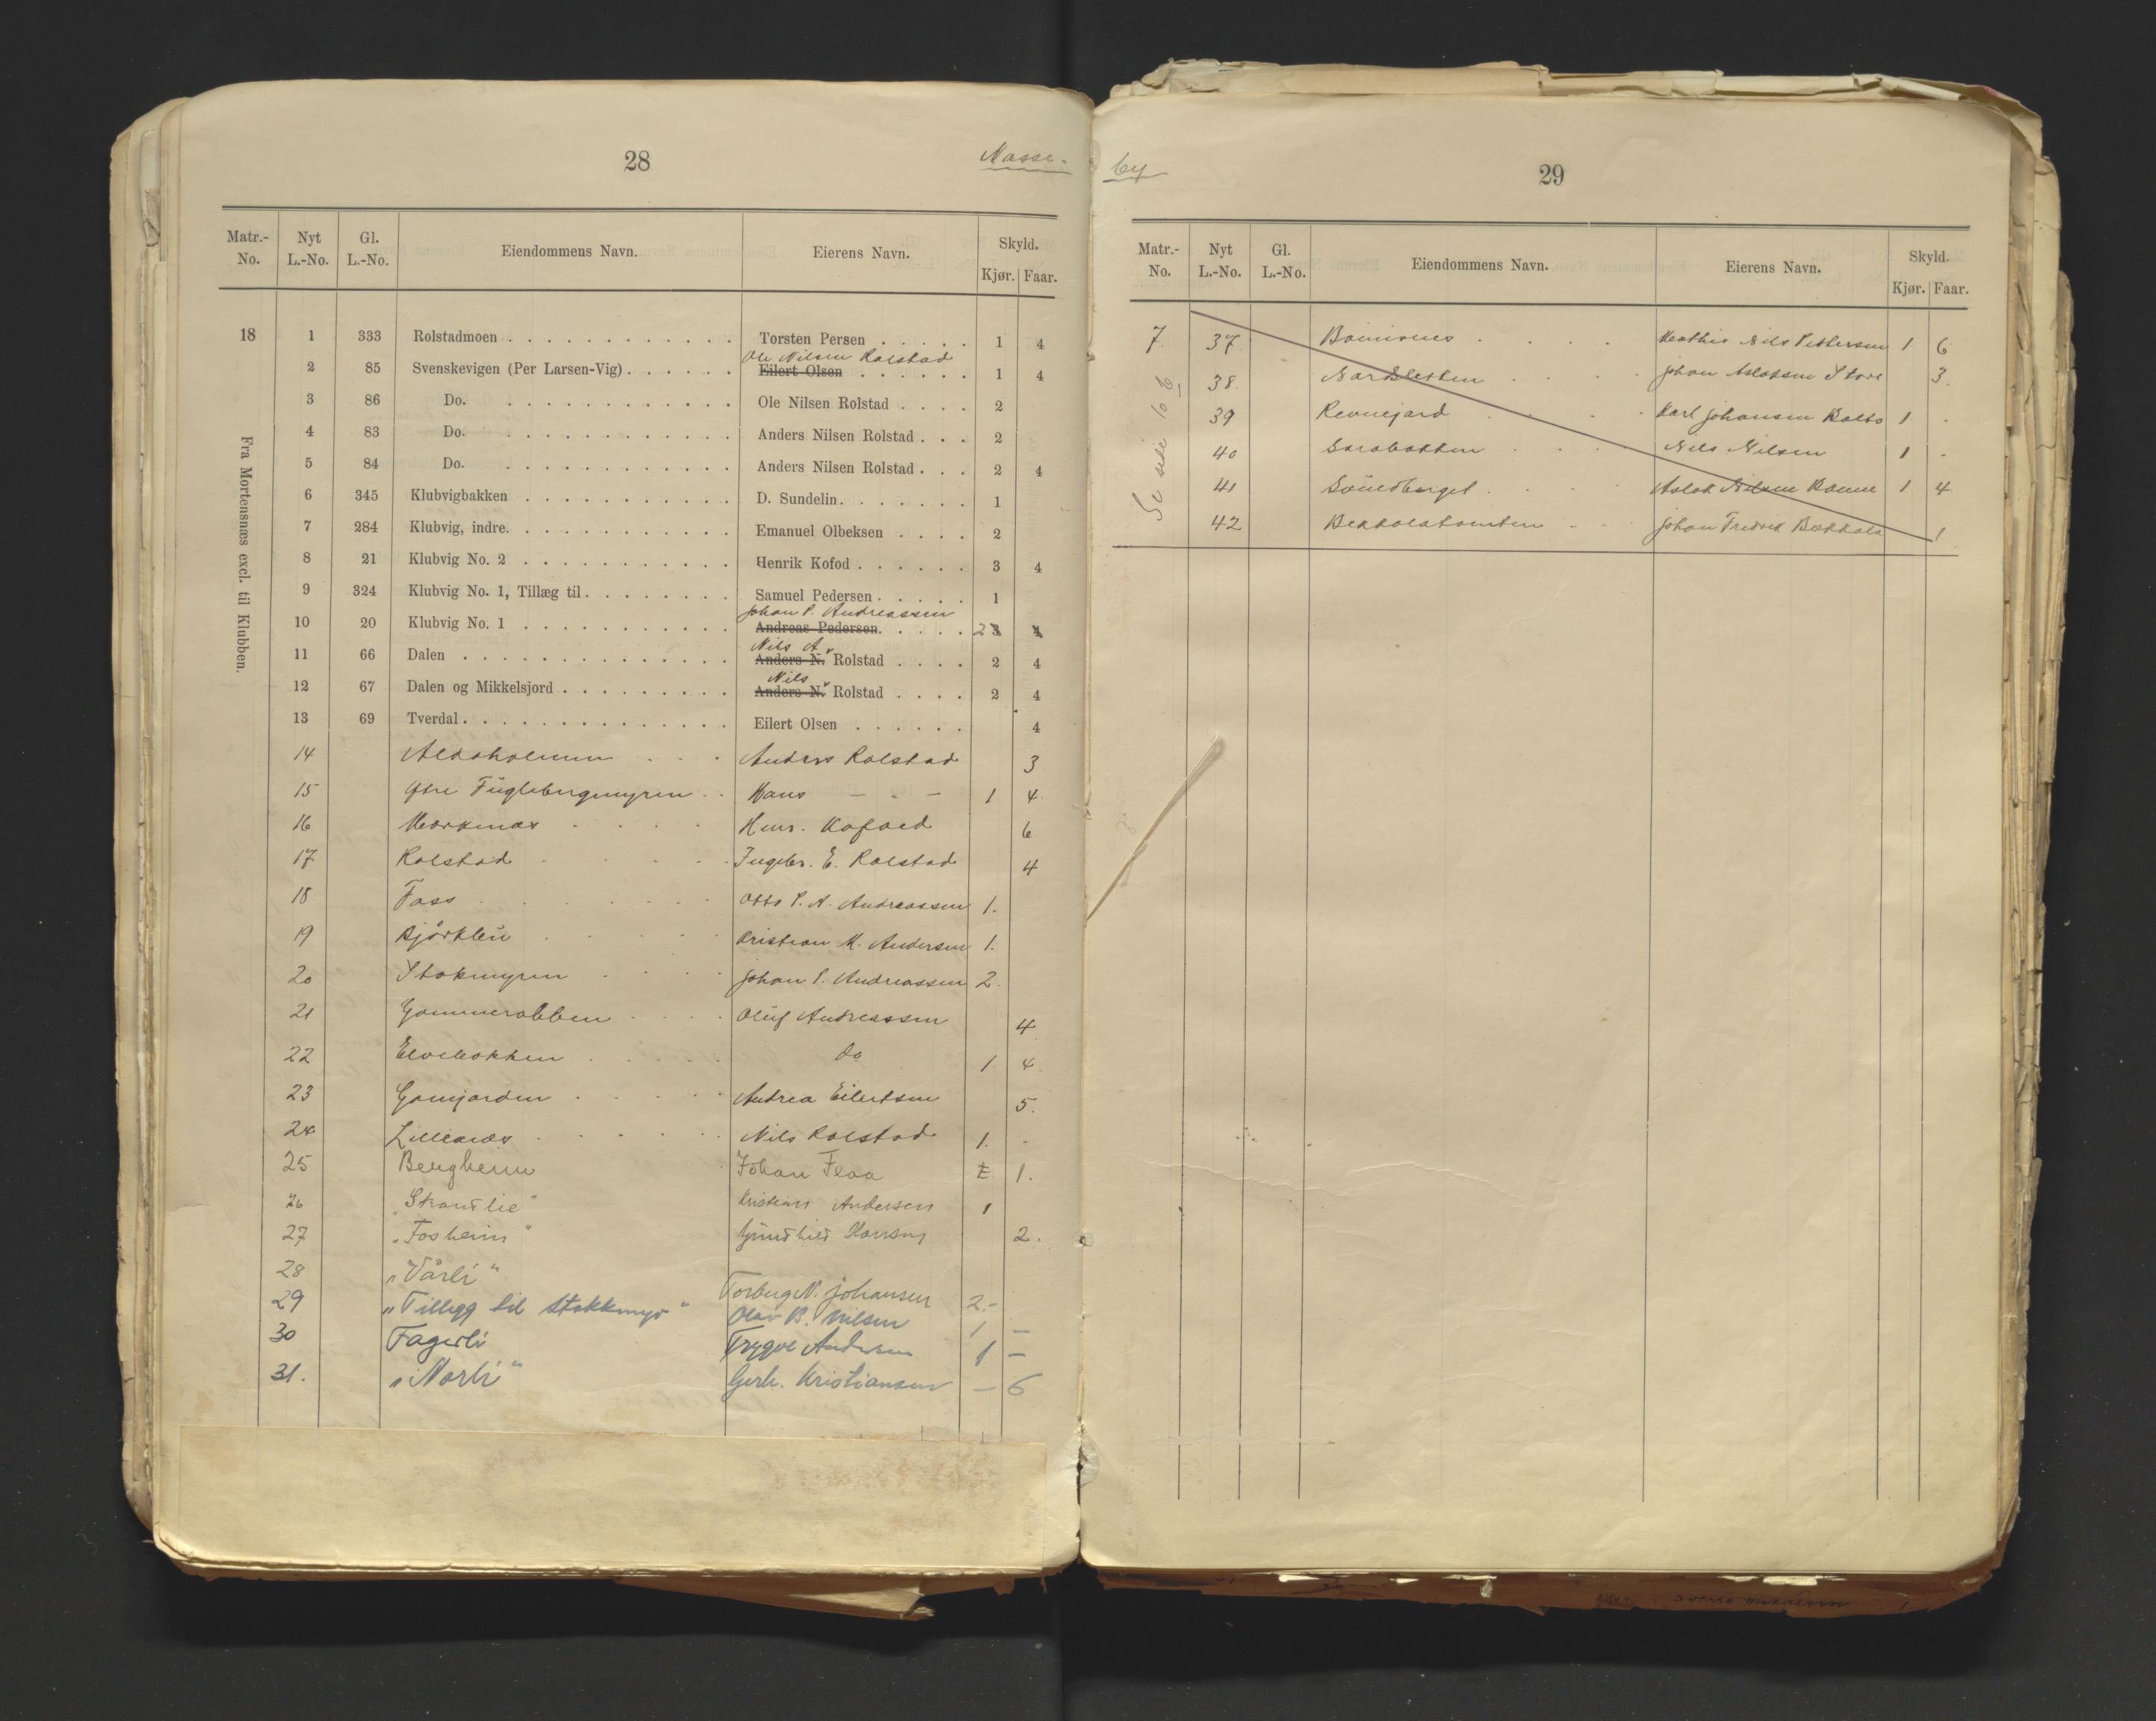 28
Nasse-
Matr.-No. Nyt L.-No. Gl. L.-No. Eiendommens Navn. Eierens Navn. Skyld. Kjør. Faar.
Fra Mortensnæs excl. til Klubben.
18 1 333 Rolstadmoen Torsten Persen 1 4
Ole Nilsen Rolstad
2 85 Svenskevigen (Per Larsen-Vig) Eilert Olsen 1 4
3 86 Do. Ole Nilsen Rolstad 2
4 83 Do. Anders Nilsen Rolstad 2
5 84 Do. Anders Nilsen Rolstad 2 4
6 345 Klubvigbakken D. Sundelin 1
7 284 Klubvig, indre. Emanuel Olbeksen 2
8 21 Klubvig No. 2 Henrik Kofod 3 4
9 324 Klubvig No. 1, Tillæg til Samuel Pedersen 1
Johan P. Andreassen
10 20 Klubvig No. 1 Andreas Pedersen. 2 3 4
Nils A.
11 66 Dalen Anders N. Rolstad 2 4
Nils
12 67 Dalen og Mikkelsjord Anders N. Rolstad 2 4
13 69 Tverdal Eilert Olsen 4
14 Anders Rolstad 3
15 Ytre Fuglebergmyren Hans — - — 1 4
16 Henr. Kofoed 6
17 Rolstad Ingebr. E. Rolstad 4
18 Foss Otto P. A. Andreassen 1.
19 Bjørkleu Kristian M. Andersen 1.
20 Stokmyren Johan P. Andreassen 2
21 Oluf Andreassen 4
22 Elvebakken do 1 4
23 Gamjorden Andrea Eilertsen 5.
24 Lillenæs Nils Rolstad 1. -
25 Bergheim Johan Floa 1.
26 "Strandlie" Kristian Andersen 1
27 "Fosheim" Gundhild Hansen 2.
28 "Vårli" Torberg N. Johansen 2.-
29 "Tillegg til Stokkmyr" Olav B. Nilsen 1 —
30 Fagerli Trygve Andersen 1 —
31. "Norli" Gerh. Kristiansen — 6
by
29
Matr.-No. Nyt L.-No. Gl. L.-No. Eiendommens Navn. Eierens Navn. Skyld. Kjør. Faar.
Se side 106
7. 37 Nils Pettersen 1 6
38. Nordsletten Johan Aslaksen Store 3.
39 Revnejord Karl Johansen Balto 1 -
40 Sarabakken Nils Nilsen 1 -
41 Aslak Nilsen 1 4
42 Johan Fredrik 1